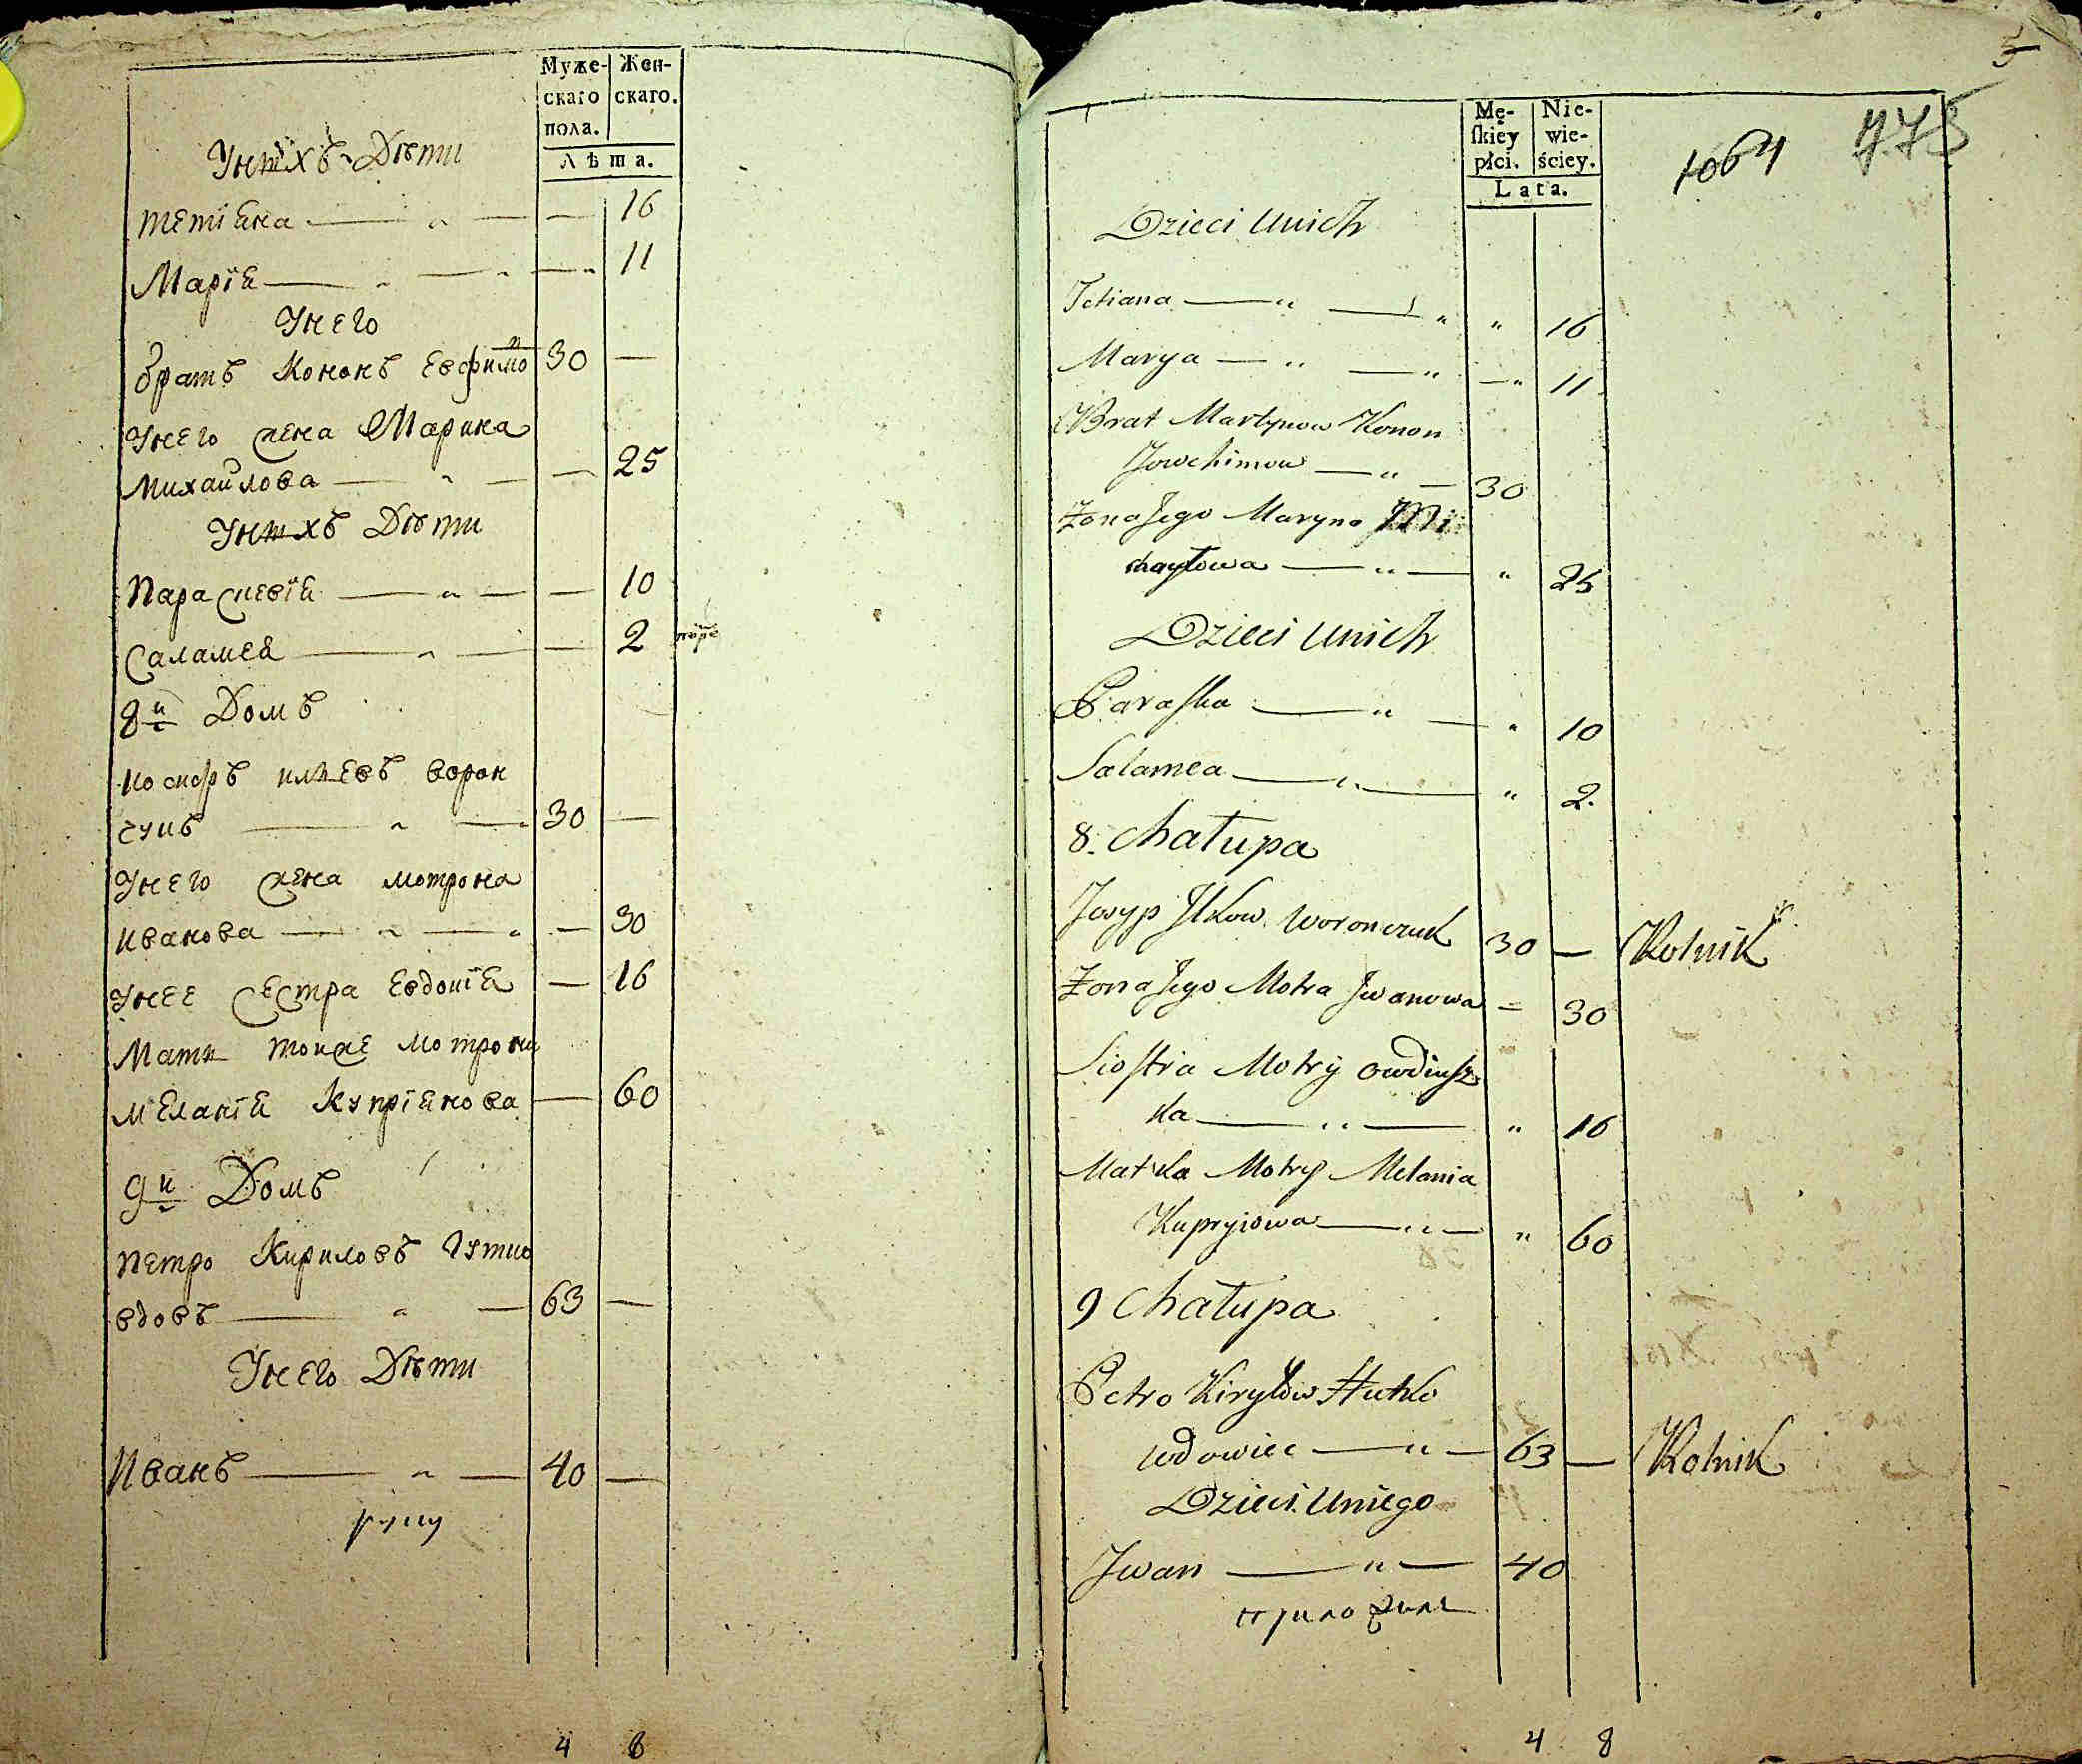 Муже- Жен-
скаго скаго.
пола.
Лѣта.
Унихъ Дѣти
Тетіана — „ — — 16
Маріа — „ — „ — „ 11
Унего
братъ Кононъ Евфимо 30 —
Унего жена Марина
Михайлова — „ — — 25
Унихъ Дѣти
Параскевіа — „ — — 10
Саламеа — „ — — 2
8й Домъ
Иосифъ Илѣевъ Ворон
чукъ — „ — 30 —
Унего жена Мотрона
Иванова — „ — „ — 30
Унее сестра Евдокіа — 16
Мати тоиже Мотрони
Меланіа Купріанова — 60
9й Домъ
Петро Кириловъ Гутко
вдовъ — „ — 63 —
Унего Дѣти
Иванъ — „ — 40 —
руку
4 8
5
Mę- Nie-
skiey wie-
płci. ściey.
Lata.
1064 775
Dzieci Unich
Tetiana — „ — „ „ 16
Marya — „ — „ — „ 11
Brat Martynow Konon
Jowchimow — „ — 30
Zona Jego Maryna Mi
chayłowa — „ — „ 25
Dzieci Unich
Paraska — „ — „ 10
Salamea — „ — „ 2.
8. Chałupa
Josyp Ilkow Woronczuk 30 — Rolnik
Zona Jego Motra Jwanowa = 30
Siostra Motry Owdiusz
ka — „ — „ 16
Matka Motry Melania
Kupryjowa — „ — „ 60
9 Chałupa
Petro Kiryłow Hutko
wdowiec — „ — 63 — Rolnik
Dzieci Uniego
Jwan — „ — 40
приложилъ
4 8